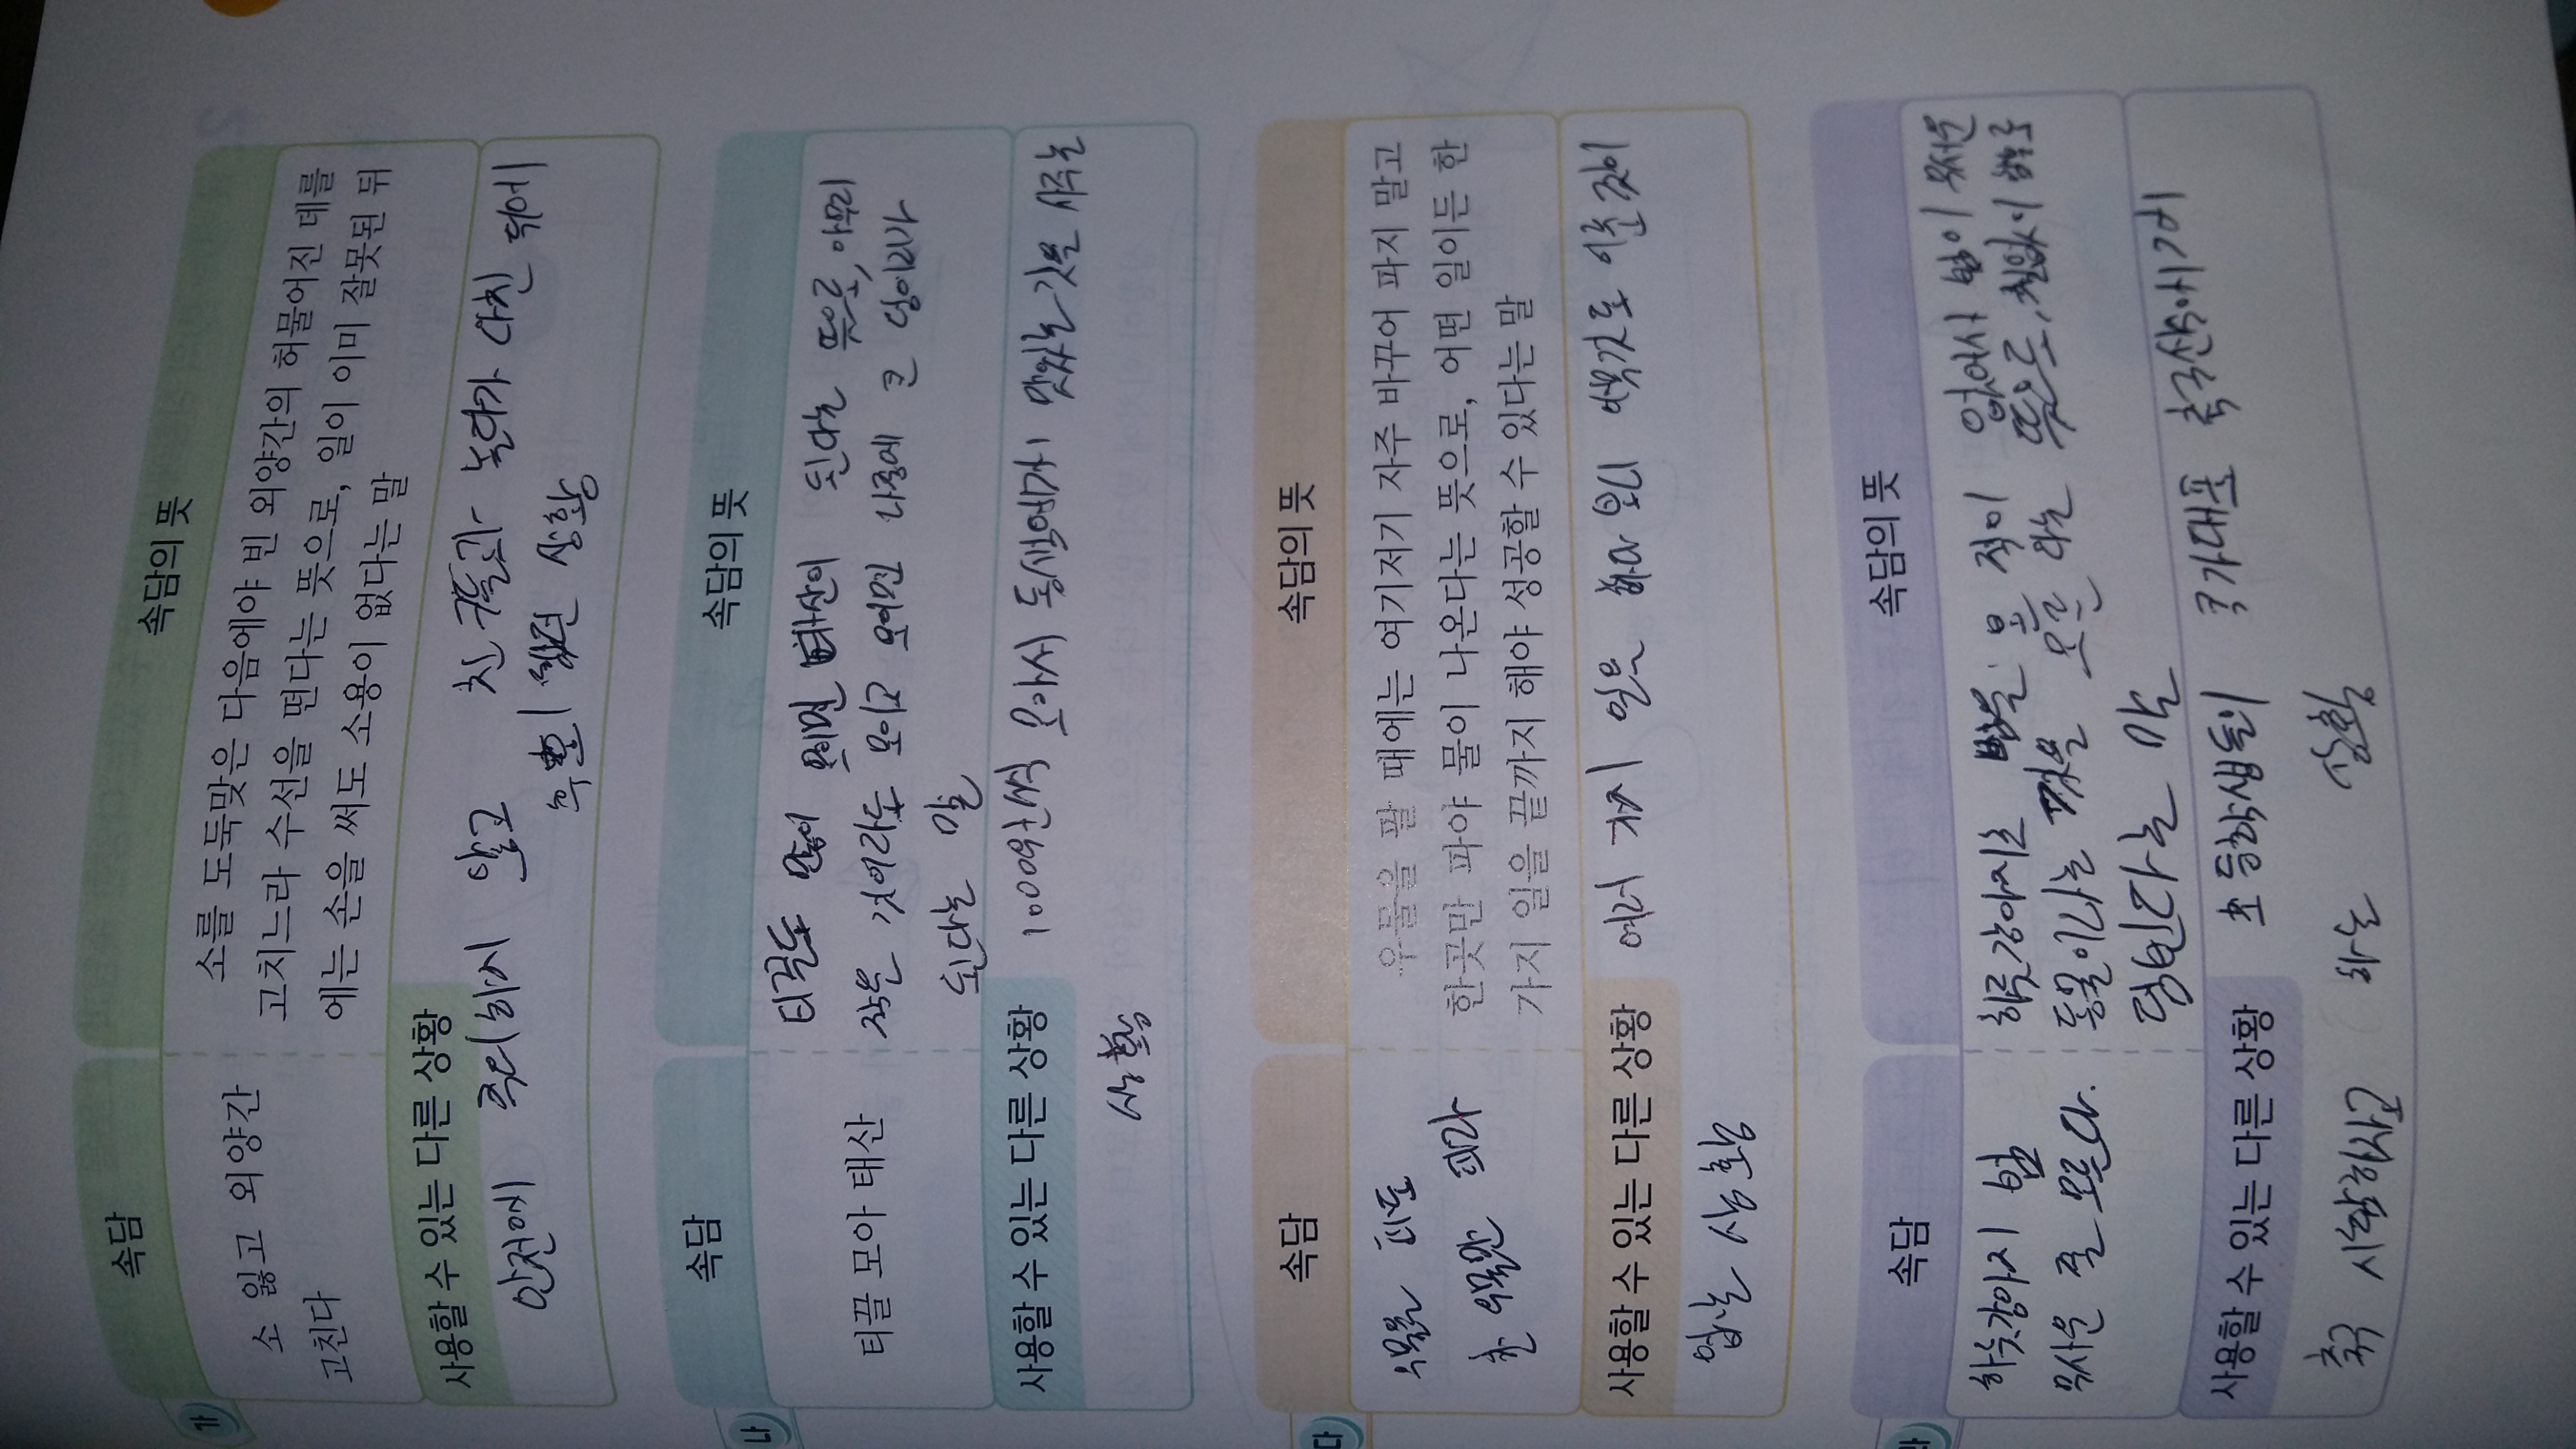 가
속담
속담의 뜻
소 잃고 외양간
고친다
소를 도둑맞은 다음에야 빈 외양간의 허물어진 데를
고치느라 수선을 떤다는 뜻으로, 일이 이미 잘못된 뒤
에는 손을 써도 소용이 없다는 말
사용할 수 있는 다른 상황
안전에 주의하지 않고 친구들과 놀다가 다친 뒤에
후회 상황
나
속담
속담의 뜻
티끌 모아 태산
티끌도 많이 모이면 태산이 된다는 뜻으로, 아무리
작은 것이라도 모이고 모이면 나중에 큰 덩어리가
된다는 말
사용할 수 있는 다른 상황
1000원씩 모아서 동생에게 맛있는 것을 사주는
상황
다
속담
속담의 뜻
우물을 파도
한 우물만 파라
우물을 팔 때에는 여기저기 자주 바꾸어 파지 말고
한곳만 파야 물이 나온다는 뜻으로, 어떤 일이든 한
가지 일을 끝까지 해야 성공할 수 있다는 말
사용할 수 있는 다른 상황
여러 가지 일을 하다 보니 어떤것도 이룬 것이
없는 상황
라
속담
속담의 뜻
하룻강아지 범
무서운 줄 모른다.
하룻강아지는 범을 본 적이 없어서 범이 무서운
동물이라는 것을 모른다는 뜻으로, 철없이 함부로
덤빈다는 말
사용할 수 있는 다른 상황
초등학생들이 국가대표 축구선수에게
축구 시합하자고 하는 상황